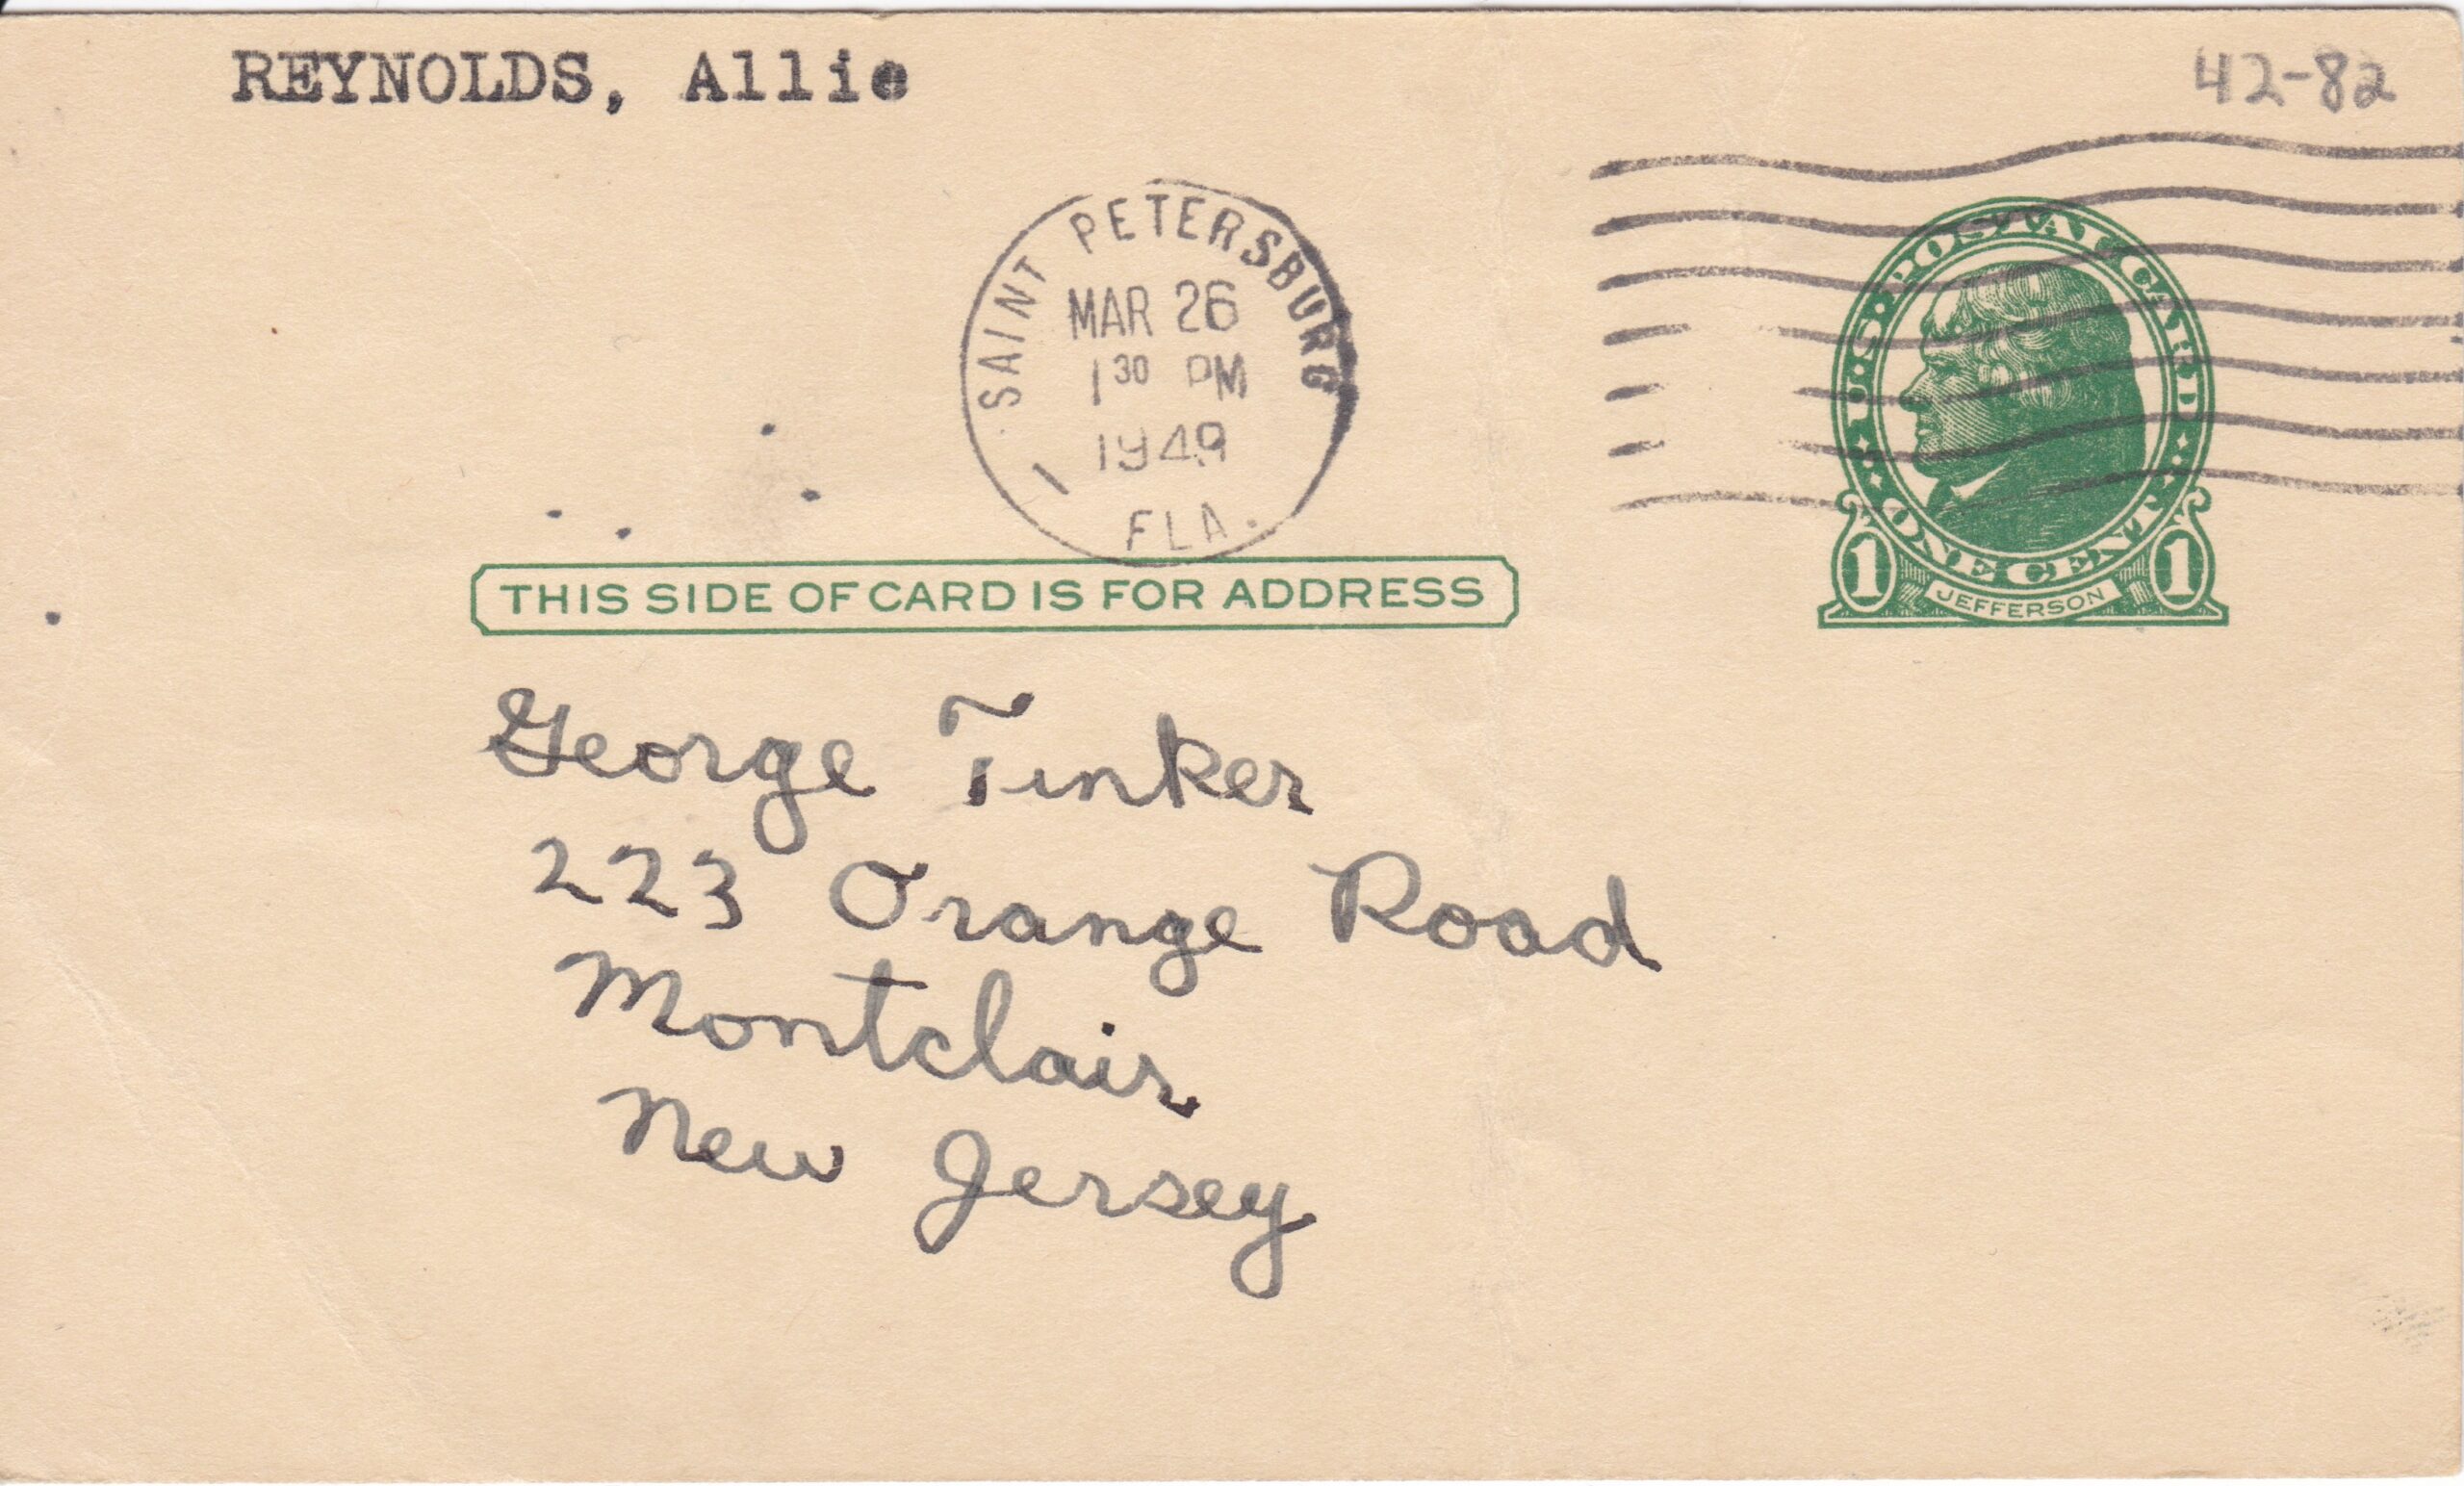 REYNOLDS, Allie
42-82
SAINT PETERSBURG
MAR 26
1 30 PM
1949
1
FLA.
U.S. POSTAL CARD
ONE CENT
1 JEFFERSON 1
THIS SIDE OF CARD IS FOR ADDRESS
George Tinker
223 Orange Road
Montclair
New Jersey